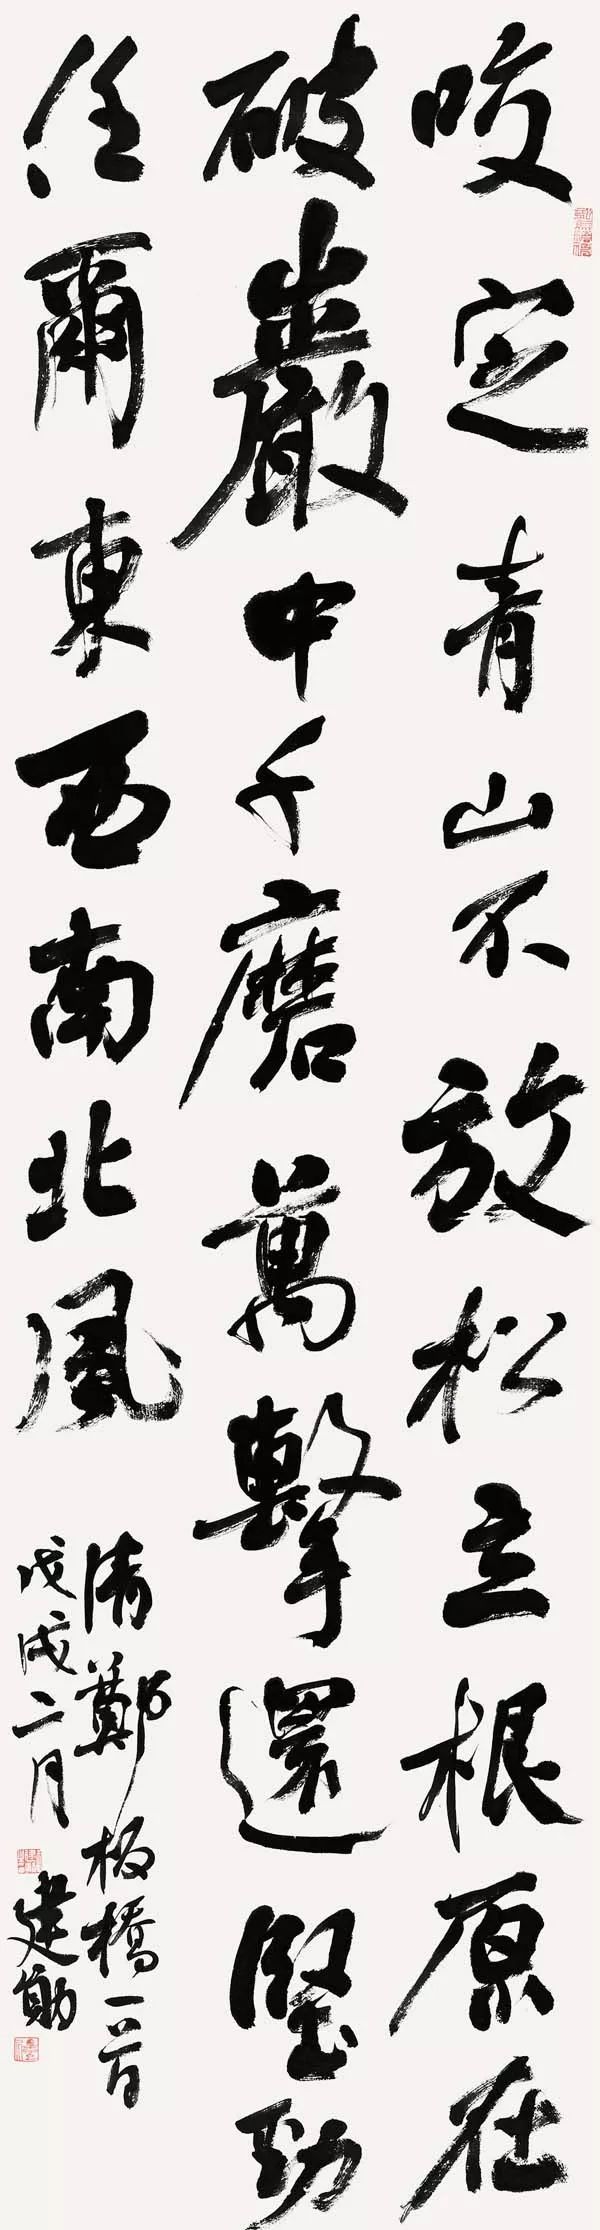 咬定青山不放松立根原在
破巖中千磨萬擊還堅勁
任爾東西南北風
清鄭板橋一首
戊戌二月
建勛